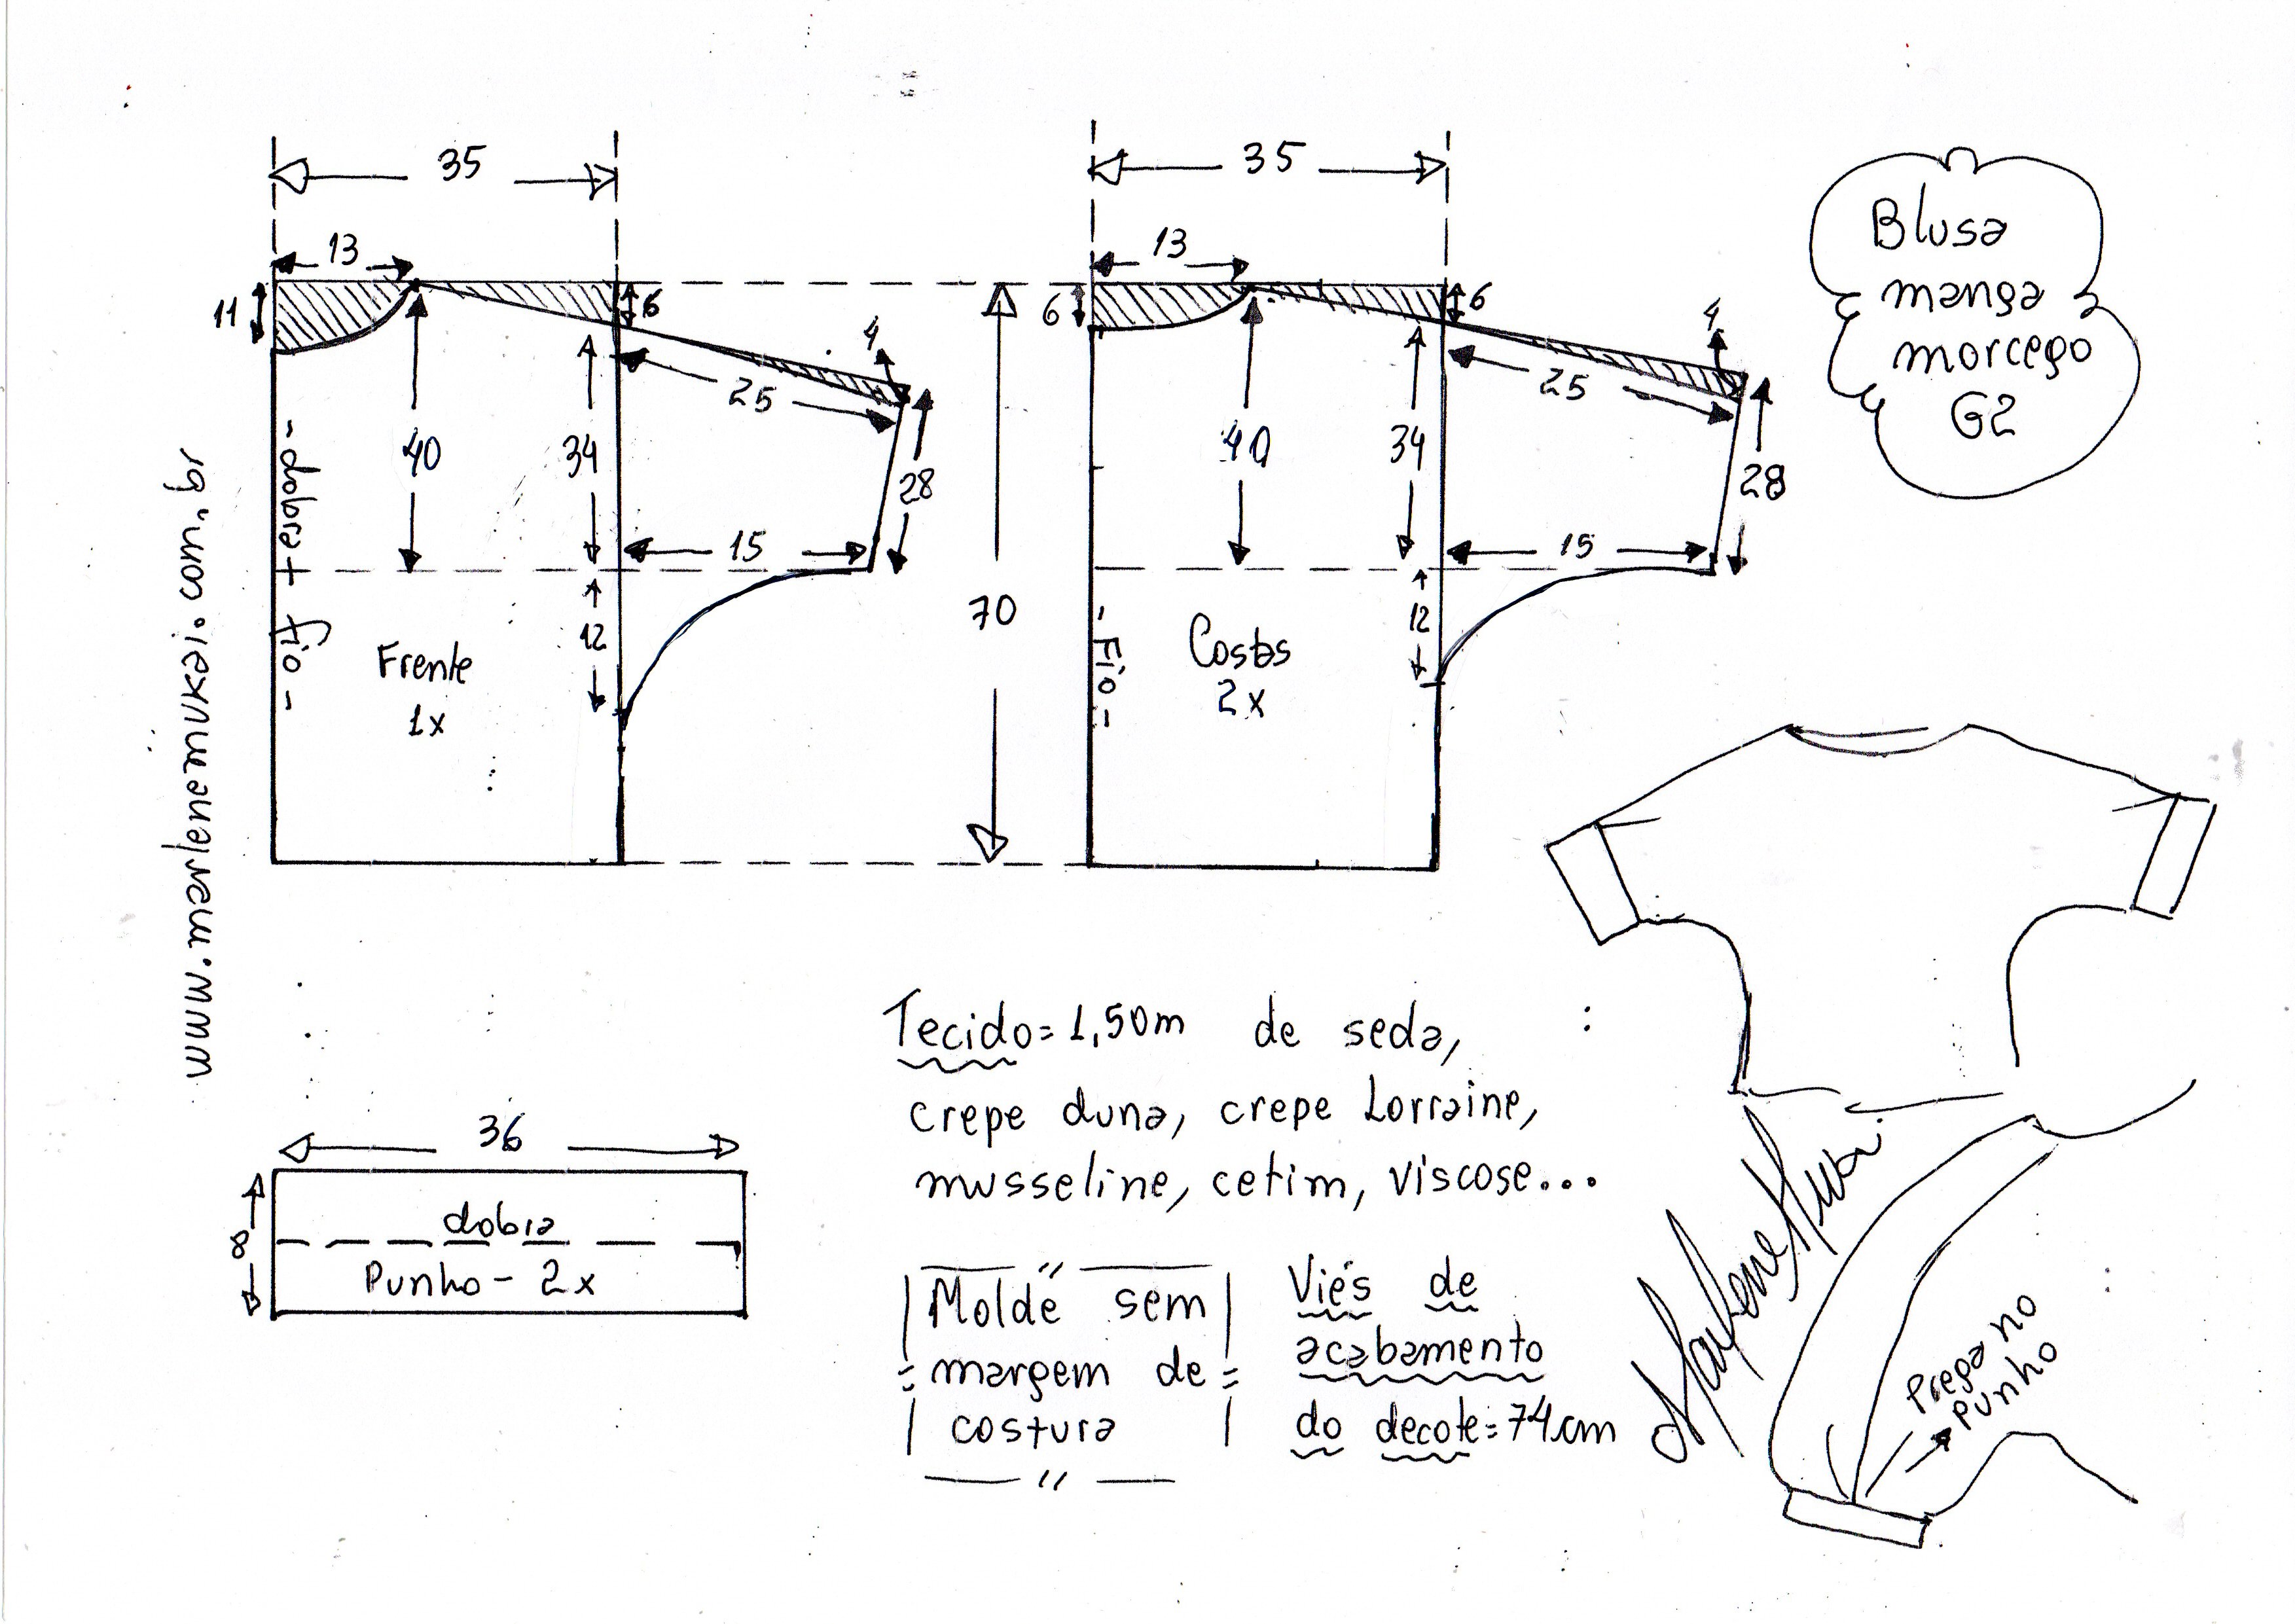 35
35
13
13
11
6
6
6
4
4
25
25
40
34
40
34
28
28
15
15
12
12
70
- dobra + fio -
Frente
1x
- Fio -
Costas
2x
www.marlenemukai.com.br
Blusa
manga
morcego
G2
36
8
dobra
Punho - 2x
Tecido = 1,50m de seda,
crepe duna, crepe Lorraine,
musseline, cetim, viscose...
Molde sem
margem de
costura
Viés de
acabamento
do decote = 74cm
Marlene Mukai
Prega no
punho